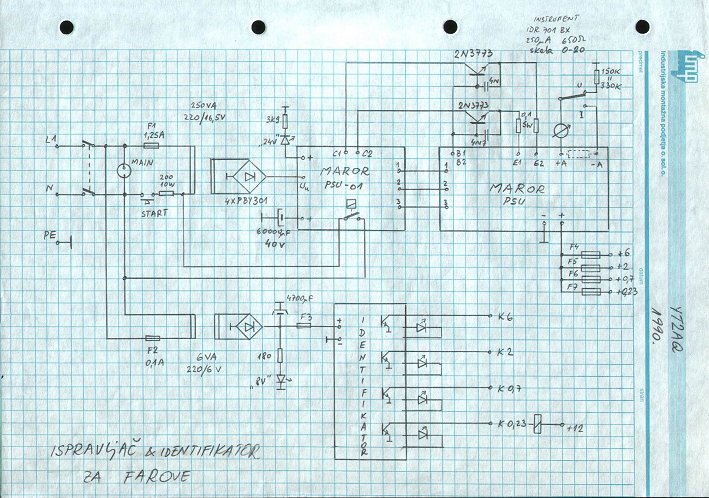 INSTRUMENT
IDR 701 BX
250µA 650Ω
skala 0-20
imp
Industrijska montažna podjetja o. sol. o.
2N3773
4N
150K
330K
U
I
2N3773
4N7
0,1
5W
250VA
220/16,5V
F1
1,25A
3K9
"24V"
L1
MAIN
N
200
10W
START
PE
4xPBY301
60000µF
40V
C1 C2
MAROR
PSU-01
Uu
+
+
1
2
3
1
2
3
B1
B2
E1 E2 +A -A
MAROR
PSU
- +
F4
F5
F6
F7
+6
+2
+0,7
+0,23
4700µF
F3
F2
0,1A
6VA
220/6V
180
"8V"
+
-
IDENTIFIKATOR
K6
K2
K0,7
K0,23
+12
ISPRAVLJAČ & IDENTIFIKATOR
ZA FAROVE
YT2AQ
1990.